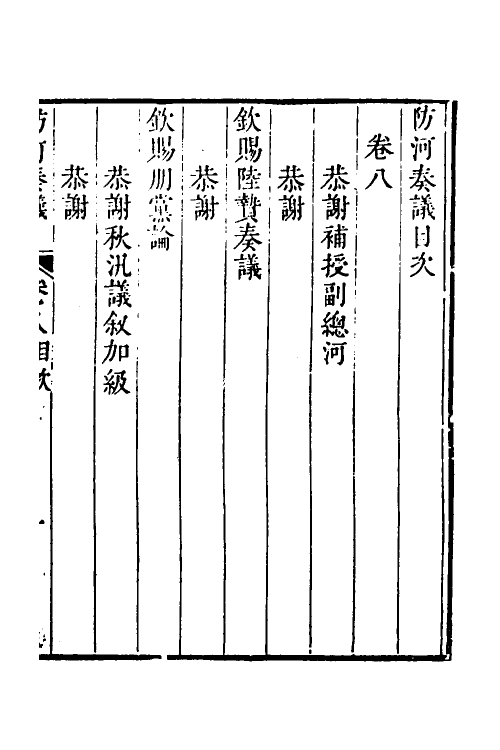 防河奏議目次
卷八
恭謝補授副總河
恭謝
欽賜陸贄奏議
恭謝
欽賜朋黨論
恭謝秋汛議敘加級
恭謝
防河奏議 卷八目次